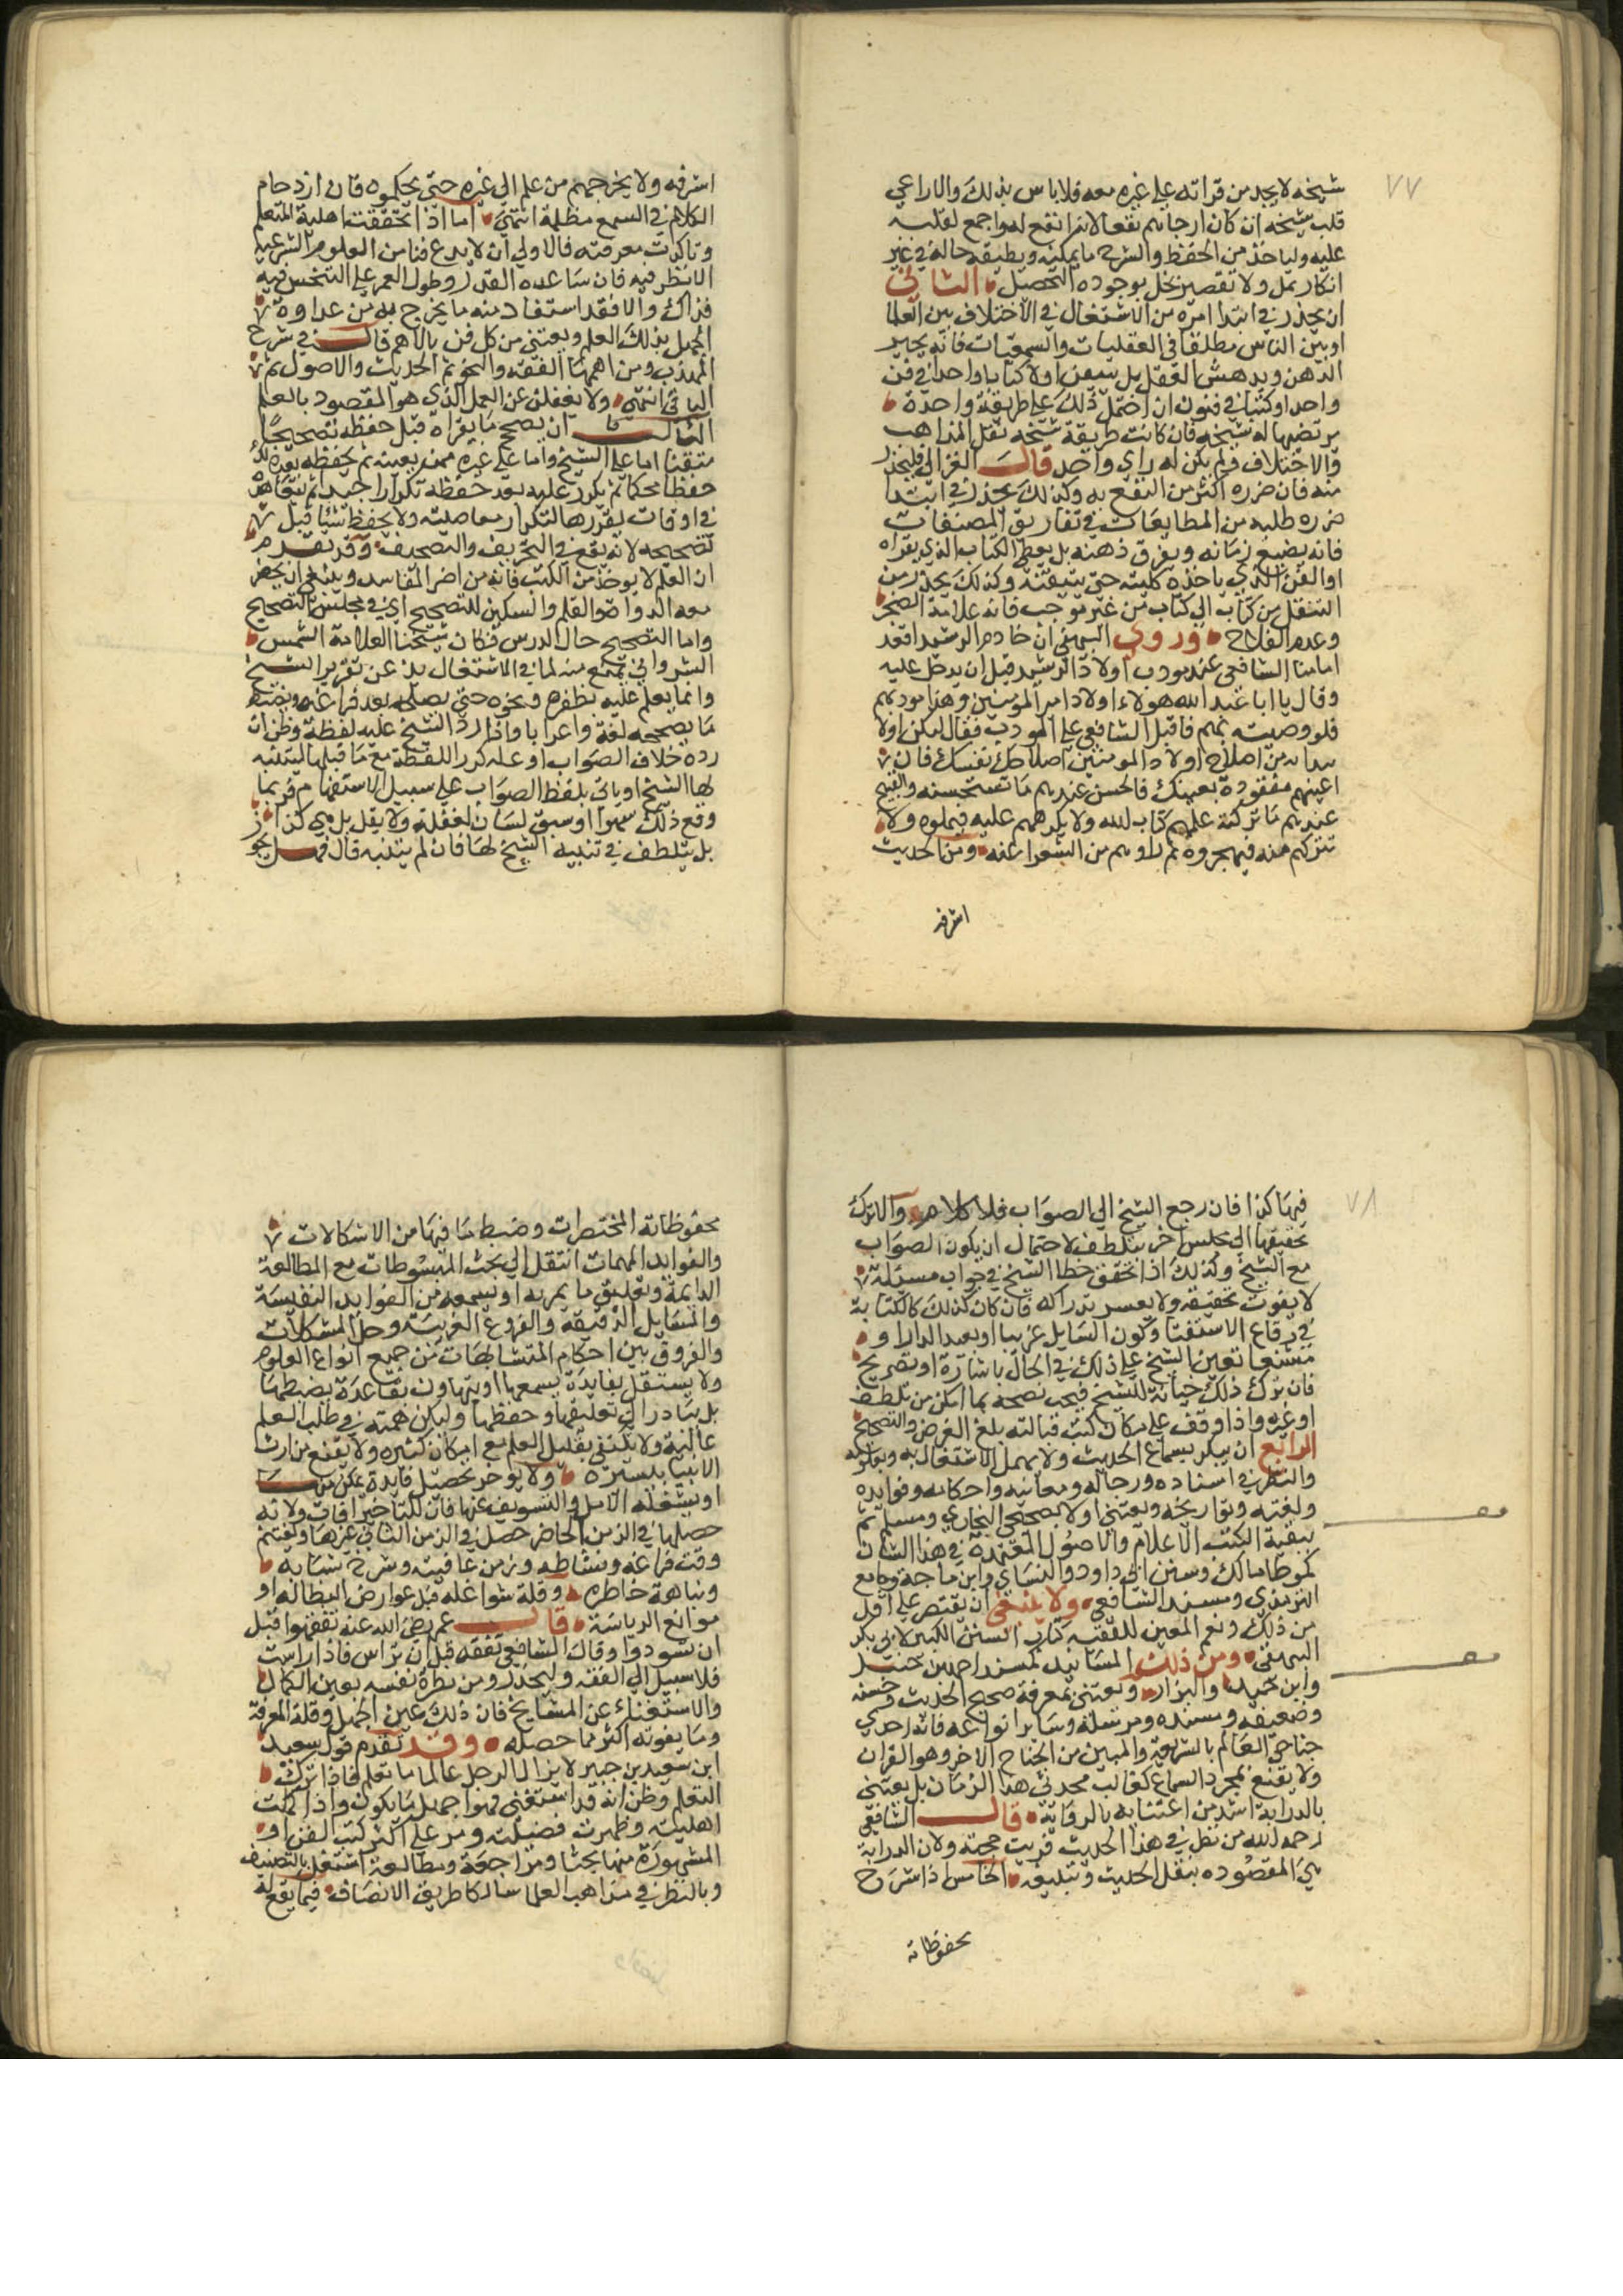 ٧٧
شيخه لا يجد من قراته على غيره معه فلا باس بذلك والا راعي
قلب شيخه ان كان ارجاهم نفعا لانه انفع له واجمع لقلبه
عليه ولياخذ من الحفظ والشرح ما يمكنه ويطيقه حاله في غير
اكثار يمل ولا تقصير يخل بجوده التحصيل الثاني
ان يحذر في ابتدا امره من الاشتغال في الاختلاف بين العلما
او بين الناس مطلقا في العقليات والسمعيات فانه يحير
الذهن ويدهش العقل بل يتقن اولا كتابا واحدا في فن
واحد او كتبا في فنون ان احتمل ذلك على طريقة واحدة
يرتضيها له شيخه فان كانت طريقة شيخه نقل المذاهب
والاختلاف ولم يكن له راي واحد قال الغزالي فليحذر
منه فان ضرره اكثر من النفع به وكذلك يحذر في ابتدا
ضرره طلبه من المطالعات في تفاريق المصنفات
فانه يضيع زمانه ويفرق ذهنه بل يعطي الكتاب الذي يقراه
او الفن الذي ياخذه كليته حتى يتيقنه وكذلك يحذر من
التنقل من كتاب الى كتاب من غير موجب فانه علامة الضجر
وعدم الفلاح وروي البيهقي ان خادم الرشيد اقعد
امامنا الشافعي عند مودب اولاد الرشيد قبل ان يدخل عليه
وقال يا ابا عبد الله هولاء اولاد امير المومنين وهذا مودبهم
فلو وصيته بهم فاقبل الشافعي على المودب فقال ليكن اولا
تبدا به من اصلاح اولاد المومنين اصلاحك نفسك فان
اعينهم معقودة بعينك فالحسن عندهم ما تستحسنه والقبيح
عندهم ما تركته علمهم كتاب الله ولا تكرههم عليه فيملوه ولا
تتركهم منه فيهجروه ثم راوهم من الشعر اعفه ومن الحديث
اشرفه
اشرفه ولا يخرجهم من علم الى غيره حتى يحكموه فان ازدحام
الكلام في السمع مظلمة انتهي اما اذا تحققت اهلية المتعلم
وتاكدت معرفته فالاولى ان لا يدع فنا من العلوم الشرعية
الا نظر فيه فان ساعده القدر وطول العمر على التبحر فيه
فذاك والا فقد استفاد منه ما يخرج به من عداوة
الجهل بذلك العلم ويعتني من كل فن بالاهم قال في شرح
المهذب ومن اهمها الفقه والنحو ثم الحديث والاصول ثم
الباقي انتهي ولا يغفلن عن العمل الذي هو المقصود بالعلم
الثالث ان يصحح ما يقراه قبل حفظه تصحيحا
متقنا اما على الشيخ واما على غيره ممن يعينه ثم يحفظه بعد ذلك
حفظا محكما ثم يكرر عليه بعد حفظه تكرارا جيدا ثم يتعاهده
في اوقات يقررها لتكرار مواصلته ولا يحفظ شيئا قبل
تصحيحه لانه يقع في التحريف والتصحيف وقد تقدم
ان العلم لا يوخذ من الكتب فانه من اضر المفاسد وينبغي ان يحضر
معه الدواة والقلم والسكين للتصحيح اي في مجلس التصحيح
واما التصحيح حال الدرس فكان شيخنا العلامة الشمس
الشرواني يمنع منه لما في الاشتغال به عن تقرير الشيخ
وانما يعلم عليه بظفره ونحوه حتى يصلحه بعد فراغه ويضبط
ما يصححه لغة واعرابا واذا رد الشيخ عليه لفظة وظن ان
رده خلاف الصواب او علمه كرر اللفظة مع ما قبلها ليتنبه
لها الشيخ او ياتي بلفظ الصواب على سبيل الاستفهام فربما
وقع ذلك سهوا او سبق لسان لغفلة ولا يقل بل هي كذا
بل يتلطف في تنبيه الشيخ لها فان لم يتنبه قال فهل يجوز
٧٨
فيها كذا فان رجع الشيخ الى الصواب فلا كلام والا ترك
تحقيقها الى مجلس اخر بتلطف لاحتمال ان يكون الصواب
مع الشيخ وكذلك اذا تحقق خطا الشيخ في جواب مسيلة
لا يفوت تحقيقه ولا يعسر تداركه فان كان كذلك كالكتابة
في رقاع الاستفتا وكون السايل غريبا او بعيد الدار او
مشنعا تعين تنبيه الشيخ على ذلك في الحال باشارة او تصريح
فان ترك ذلك خيانة للشيخ فيجب نصحه بما امكن من تلطف
او غيره واذا وقف على مكان كتب قبالته بلغ العرض والتصحيح
الرابع ان يبكر بسماع الحديث ولا يهمل الاشتغال به وبعلومه
والنظر في اسناده ورجاله ومعانيه واحكامه وفوايده
ولغته وتواريخه ويعتني اولا بصحيحي البخاري ومسلم ثم
ببقية الكتب الاعلام والاصول المعتمدة في هذا الشان
كموطا مالك وسنن ابي داود والنساي وابن ماجة وجامع
الترمذي ومسند الشافعي ولا ينبغي ان يقتصر على اقل
من ذلك ونعم المعين للفقيه كتاب السنن الكبير لابي بكر
البيهقي ومن ذلك المسانيد كمسند احمد بن حنبل
وابن حميد والبزار ويعتني بمعرفة صحيح الحديث وحسنه
وضعيفه ومسنده ومرسله وساير انواعه فانه احدي
جناحي العالم بالشريعة والمبين من الجناح الاخر وهو القران
ولا يقنع بمجرد السماع كغالب محدثي هذا الزمان بل يعتني
بالدراية اشد من اعتنايه بالرواية قال الشافعي
رحمه الله من نظر في هذا الحديث قويت حجته ولان الدراية
هي المقصوده بنقل الحديث وتبليغه الخامس اذا شرح
محفوظاته
محفوظاته المختصرات وضبط ما فيها من الاشكالات
والفوايد المهمات انتقل الى بحث المبسوطات مع المطالعة
الدايمة وتعليق ما يمر به او يسمعه من الفوايد النفيسة
والمسايل الدقيقة والفروع الغريبة وحل المشكلات
والفروق بين احكام المتشابهات من جميع انواع العلوم
ولا يستقل بفايدة يسمعها او يتهاون بقاعدة يضبطها
بل يبادر الى تعليقها وحفظها وليكن همته في طلب العلم
عالية ولا يكتفي بقليل العلم مع امكان كثيره ولا يقنع من ارث
الانبيا بيسيره ولا يوخر تحصيل فايدة تمكن منها
او يشغله الامل والتسويف عنها فان للتاخير افات ولانه
حصلها في الزمن الحاضر حصل في الزمن الثاني غيرها ويغتنم
وقت فراغه ونشاطه وزمن عافيته وشرخ شبابه
ونباهة خاطره وقلة شواغله قبل عوارض البطالة او
موانع الرياسة قال عمر رضي الله عنه تفقهوا قبل
ان تسودوا وقال الشافعي تفقه قبل ان تراس فاذا راست
فلا سبيل الى الفقه وليحذر من نظره نفسه بعين الكمال
والاستغناء عن المشايخ فان ذلك عين الجهل وقلة المعرفة
وما يفوته اكثر مما حصله وقد تقدم قول سعيد
ابن سعيد بن جبير لا يزال الرجل عالما ما تعلم فاذا ترك
التعلم وظن انه قد استغني فهو اجهل ما يكون واذا كملت
اهليته وظهرت فضيلته ومر على اكثر كتب الفن او
المشهورة منها بحثا ومراجعة ومطالعة اشتغل بالتصنيف
وبالنظر في مذاهب العلما سالكا طريق الانصاف فيما يقع له